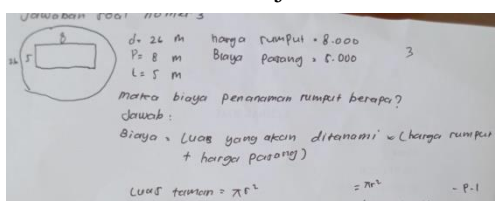 Jawaban soal nomer 3
8
26 5
d= 26 m harga rumput = 8.000
P= 8 m Biaya pasang = 5.000 3
L= 5 m
maka biaya penanaman rumput berapa?
Jawab:
Biaya = Luas yang akan ditanami × (harga rumput
+ harga pasang)
Luas taman = πr² = πr² - P.l